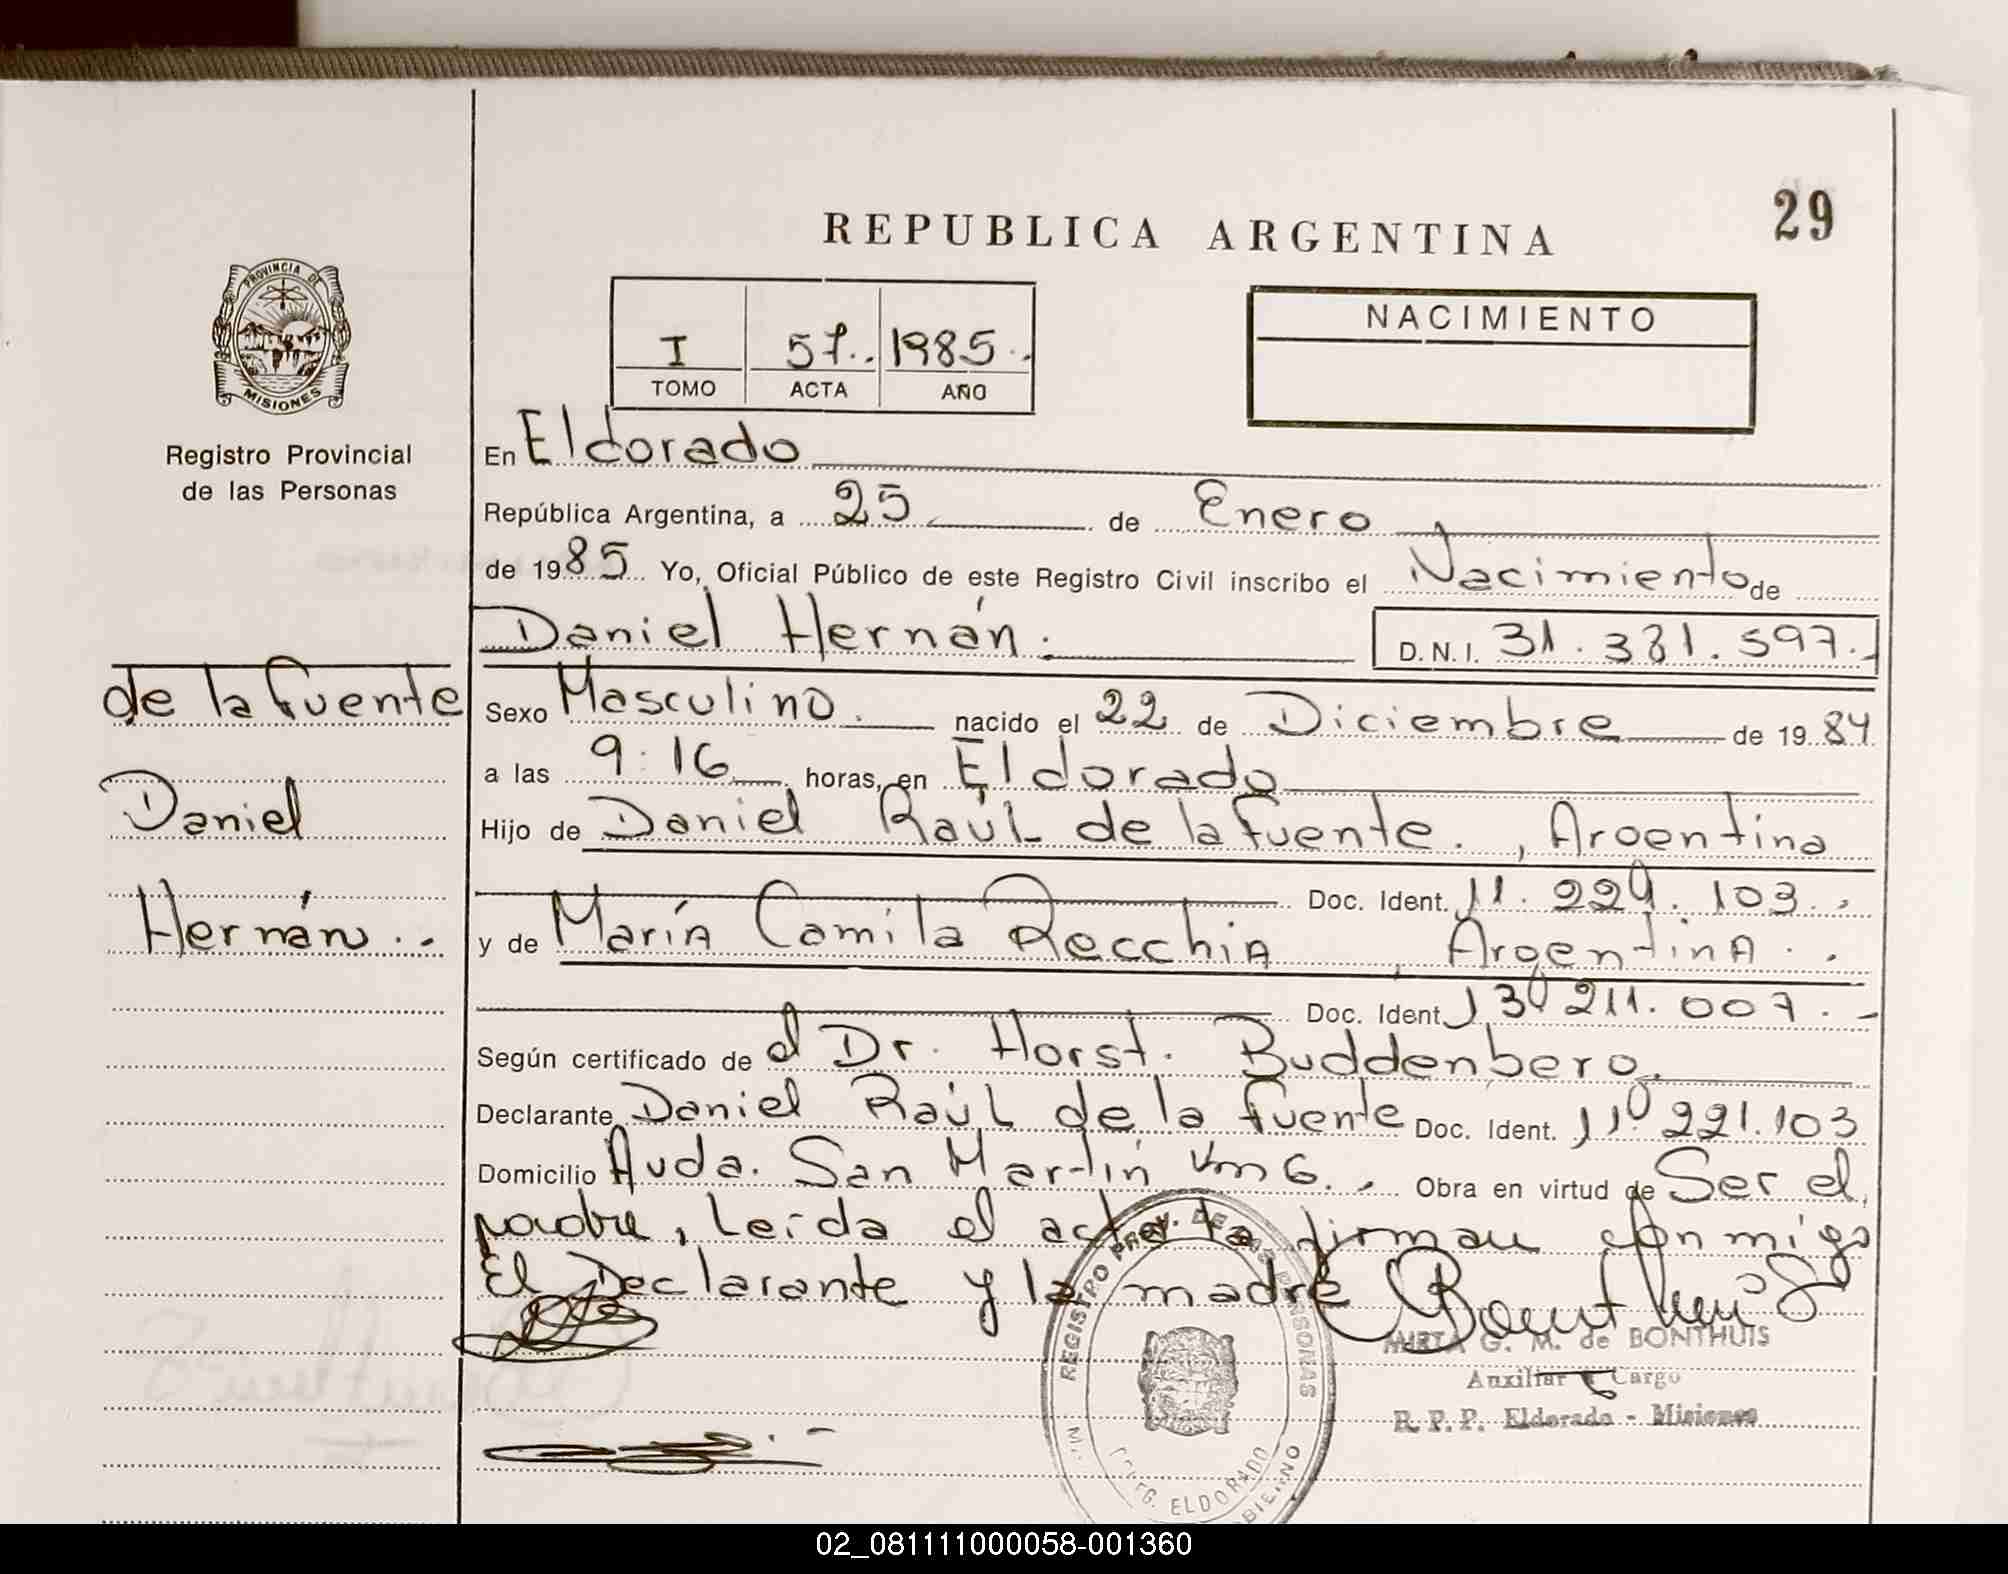 29
REPUBLICA ARGENTINA
PROVINCIA DE
MISIONES
NACIMIENTO
I 57.. 1985..
TOMO ACTA AÑO
Registro Provincial
de las Personas
En Eldorado
República Argentina, a 25 de Enero
de 1985 Yo, Oficial Público de este Registro Civil inscribo el Nacimiento de
Daniel Hernán. D.N.I. 31.331.597.-
de la fuente
Daniel
Hernán..
Sexo Masculino. nacido el 22 de Diciembre de 1984
a las 9:16 horas, en Eldorado
Hijo de Daniel Raúl de la fuente., Argentino
Doc. Ident. 11.221.103..
y de María Camila Recchia, Argentina..
Doc. Ident. 13.211.007.-
Según certificado de el Dr. Horst. Buddenberg.
Declarante Daniel Raúl de la fuente Doc. Ident. 11.221.103
Domicilio Avda. San Martín Km 6.. Obra en virtud de Ser el
padre, Leída el acta la firman conmigo
El Declarante y la madre
MIRTA G. M. de BONTHUIS
Auxiliar a Cargo
R. P. P. Eldorado - Misiones
REGISTRO PROV. DE LAS PERSONAS
ELDORADO
02_081111000058-001360